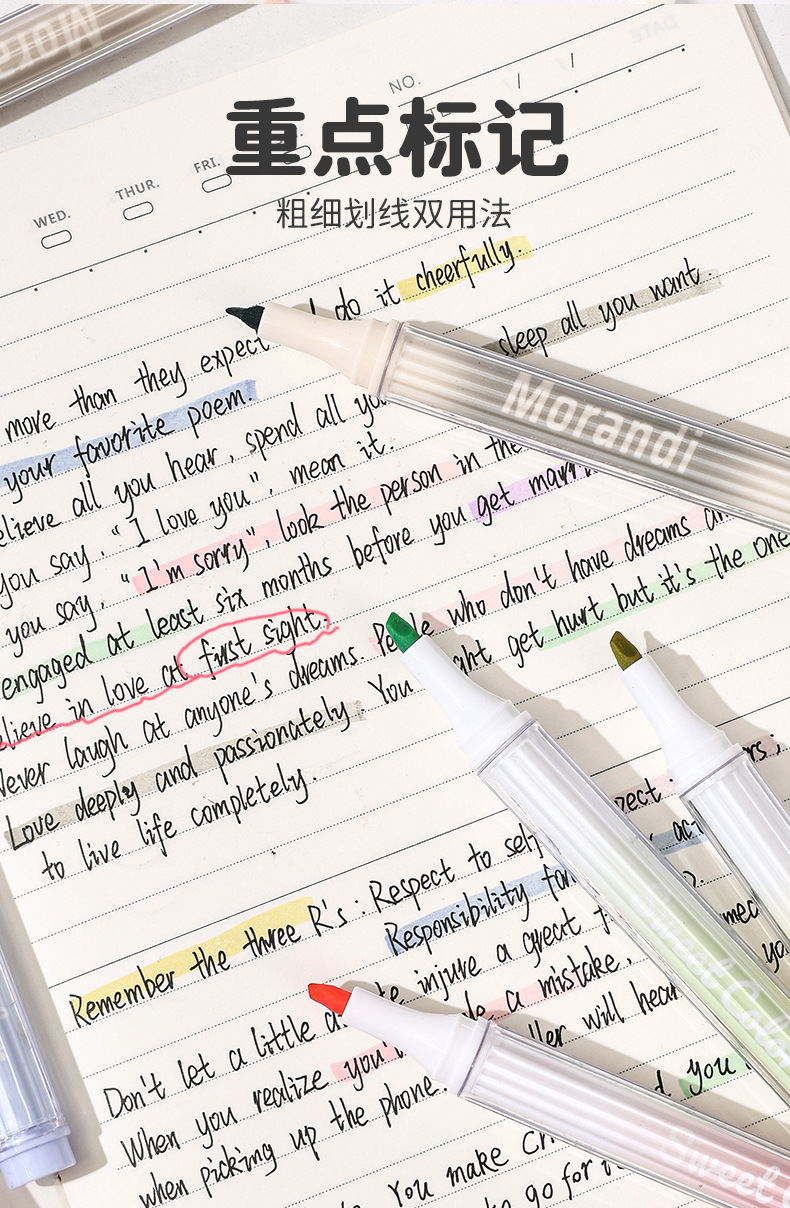 Morandi
DATE
NO.
重点标记
WED.
THUR.
FRI.
粗细划线双用法
do it cheerfully.
more than they expect
sleep all you want.
your favorite poem.
Morandi
believe all you hear, spend all you
you say. "I love you", mean it.
you say. "I'm sorry", look the person in the
engaged at least six months before you get marri
believe in love at first sight.
Never laugh at anyone's dreams. People who don't have dreams
Love deeply and passionately. You might get hurt but it's the one
to live life completely.
Remember the three R's: Respect to self
pect
ers;
Responsibility for
act
Don't let a little
te injure a great f
med
When you realize you'
a mistake,
yo
when picking up the phone.
ller will hear
you
You make Ch
to go for i
Sweet Color
Sweet C